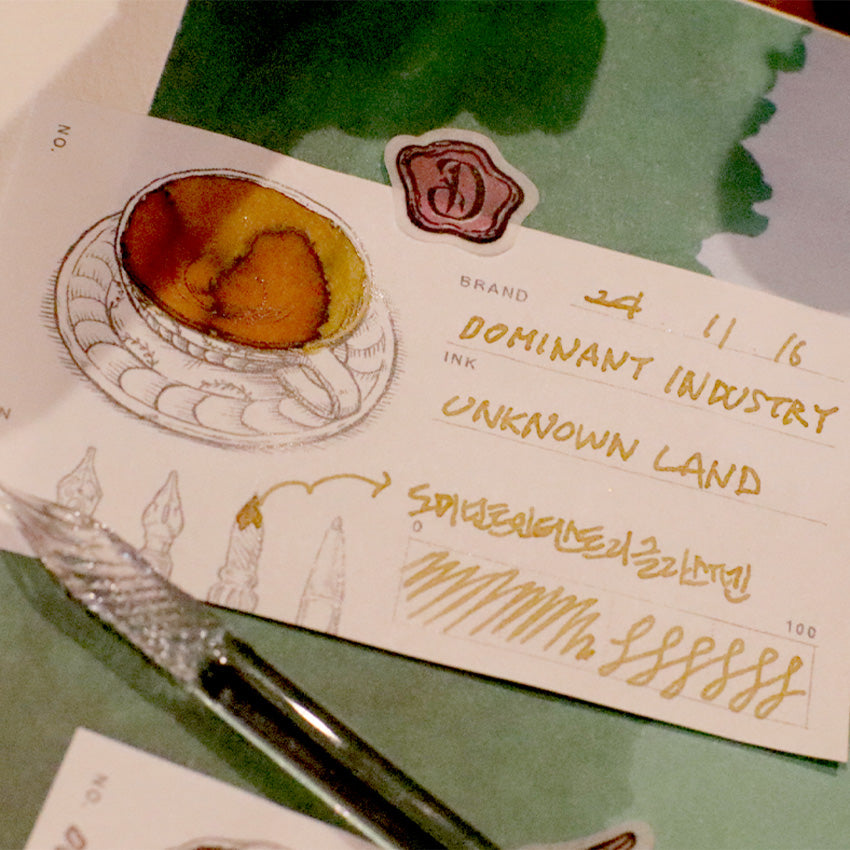 NO.
D
BRAND
24 11 . 16
DOMINANT INDUSTRY
INK
UNKNOWN LAND
도미넌트인더스트리글라스펜
0
100
NO.